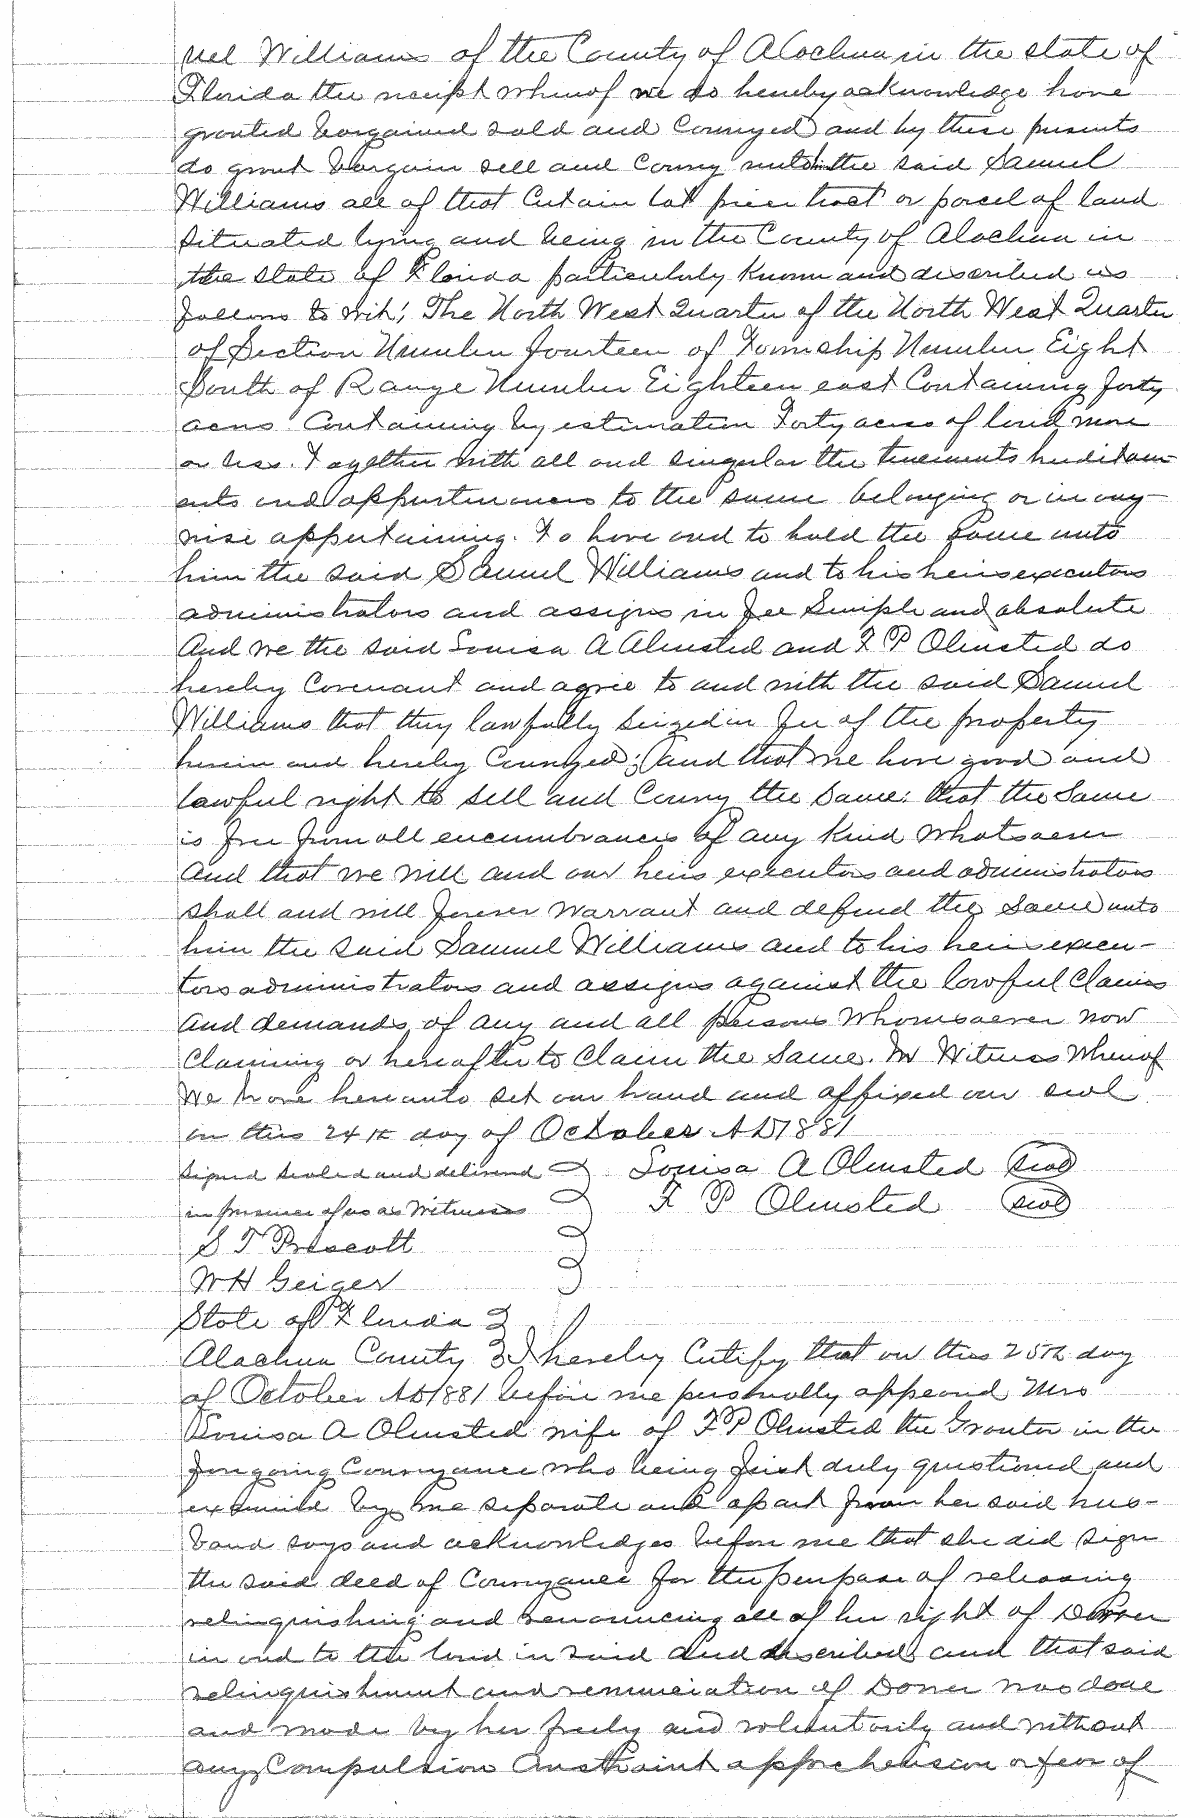 uel Williams of the County of Alachua in the state of
Florida the receipt whereof we do hereby acknowledge have
granted bargained sold and Conveyed and by these presents
do grant bargain sell and Convey unto the said Samuel
Williams all of that Certain lot piece tract or parcel of land
situated lying and being in the County of Alachua in
the state of Florida particularly Known and described as
follows to wit; The North West Quarter of the North West Quarter
of Section Number fourteen of Township Number Eight
South of Range Number Eighteen east Containing forty
acres Containing by estimation Forty acres of land more
or less. Together with all and singular the tenements heriditam-
ents and appurtenances to the same belonging or in any-
wise appertaining. To have and to hold the same unto
him the said Samuel Williams and to his heirs executors
administrators and assigns in fee Simple and absolute
And we the said Louisa A Olmsted and F P Olmsted do
hereby Covenant and agree to and with the said Samuel
Williams that they lawfully Seized in fee of the property
herein and hereby Conveyed; and that we have good and
lawful right to sell and Convey the same; that the Same
is free from all encumbrances of any Kind whatsoever
And that we will and our heirs executors and administrators
shall and will forever warrant and defend the same unto
him the said Samuel Williams and to his heirs execu-
tors administrators and assigns against the lawful Claims
and demands of any and all persons whomsoever now
Claiming or hereafter to Claim the Same. In Witness Whereof
We have hereunto set our hand and affixed our seal
on this 24th day of October AD 1881
Signed sealed and delivered Louisa A Olmsted seal
in presence of us as Witnesses F P Olmsted seal
S T Prescott
W H Geiger
State of Florida
Alachua County I hereby Certify that on this 25th day
of October AD 1881 before me personally appeared Mrs
Louisa A Olmsted wife of F P Olmsted the Grantor in the
foregoing Conveyance who being first duly questioned and
examined by me separate and apart from her said hus-
band says and acknowledges before me that she did sign
the said deed of Conveyance for the purpose of releasing
relinquishing and renouncing all of her right of Dower
in and to the land in said deed described and that said
relinquishment and renunciation of Dower was done
and made by her freely and voluntarily and without
any Compulsion Constraint apprehension or fear of